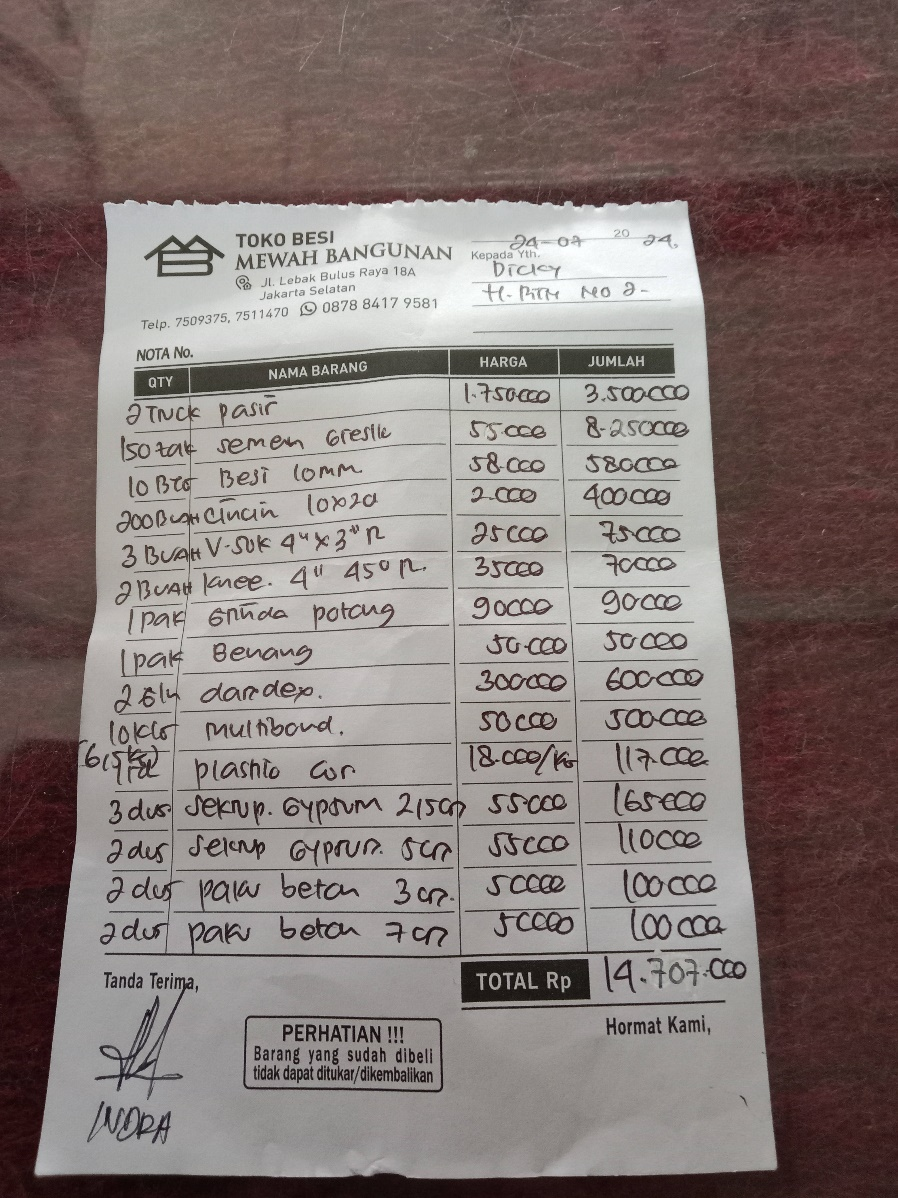 TOKO BESI
MEWAH BANGUNAN
Jl. Lebak Bulus Raya 18A
Jakarta Selatan
Telp. 7509375, 7511470 0878 8417 9581
24-07 20 24.
Kepada Yth.
Dicky
H. BTN NO 2-
NOTA No.
QTY NAMA BARANG HARGA JUMLAH
2 Truck pasir 1.750000 3.500.000
150 zak semen Gresik 55.000 8.250000
10 Btg Besi 10mm 58.000 580000
200 Buah cincin 10x20 2.000 400000
3 Buah V-sok 4" x 3" R 25000 75.000
2 Buah knee. 4" 45° R. 35000 70000
1 pak Grinda potong 90000 90000
1 pak Benang 50.000 50000
2 Gln dandex. 300000 600.000
10 klg multibond. 50000 500.000
(6,5 kg)
plastic cor. 18.000/kg 117.000
3 dus sekrup. Gypsum 2,5cm 55.000 165.000
2 dus sekrup Gypsum. 5cm 55000 110000
2 dus paku beton 3 cm. 50000 100000
2 dus paku beton 7 cm 50000 100000
TOTAL Rp 14.707.000
Tanda Terima,
Hormat Kami,
PERHATIAN !!!
Barang yang sudah dibeli
tidak dapat ditukar/dikembalikan
INDRA